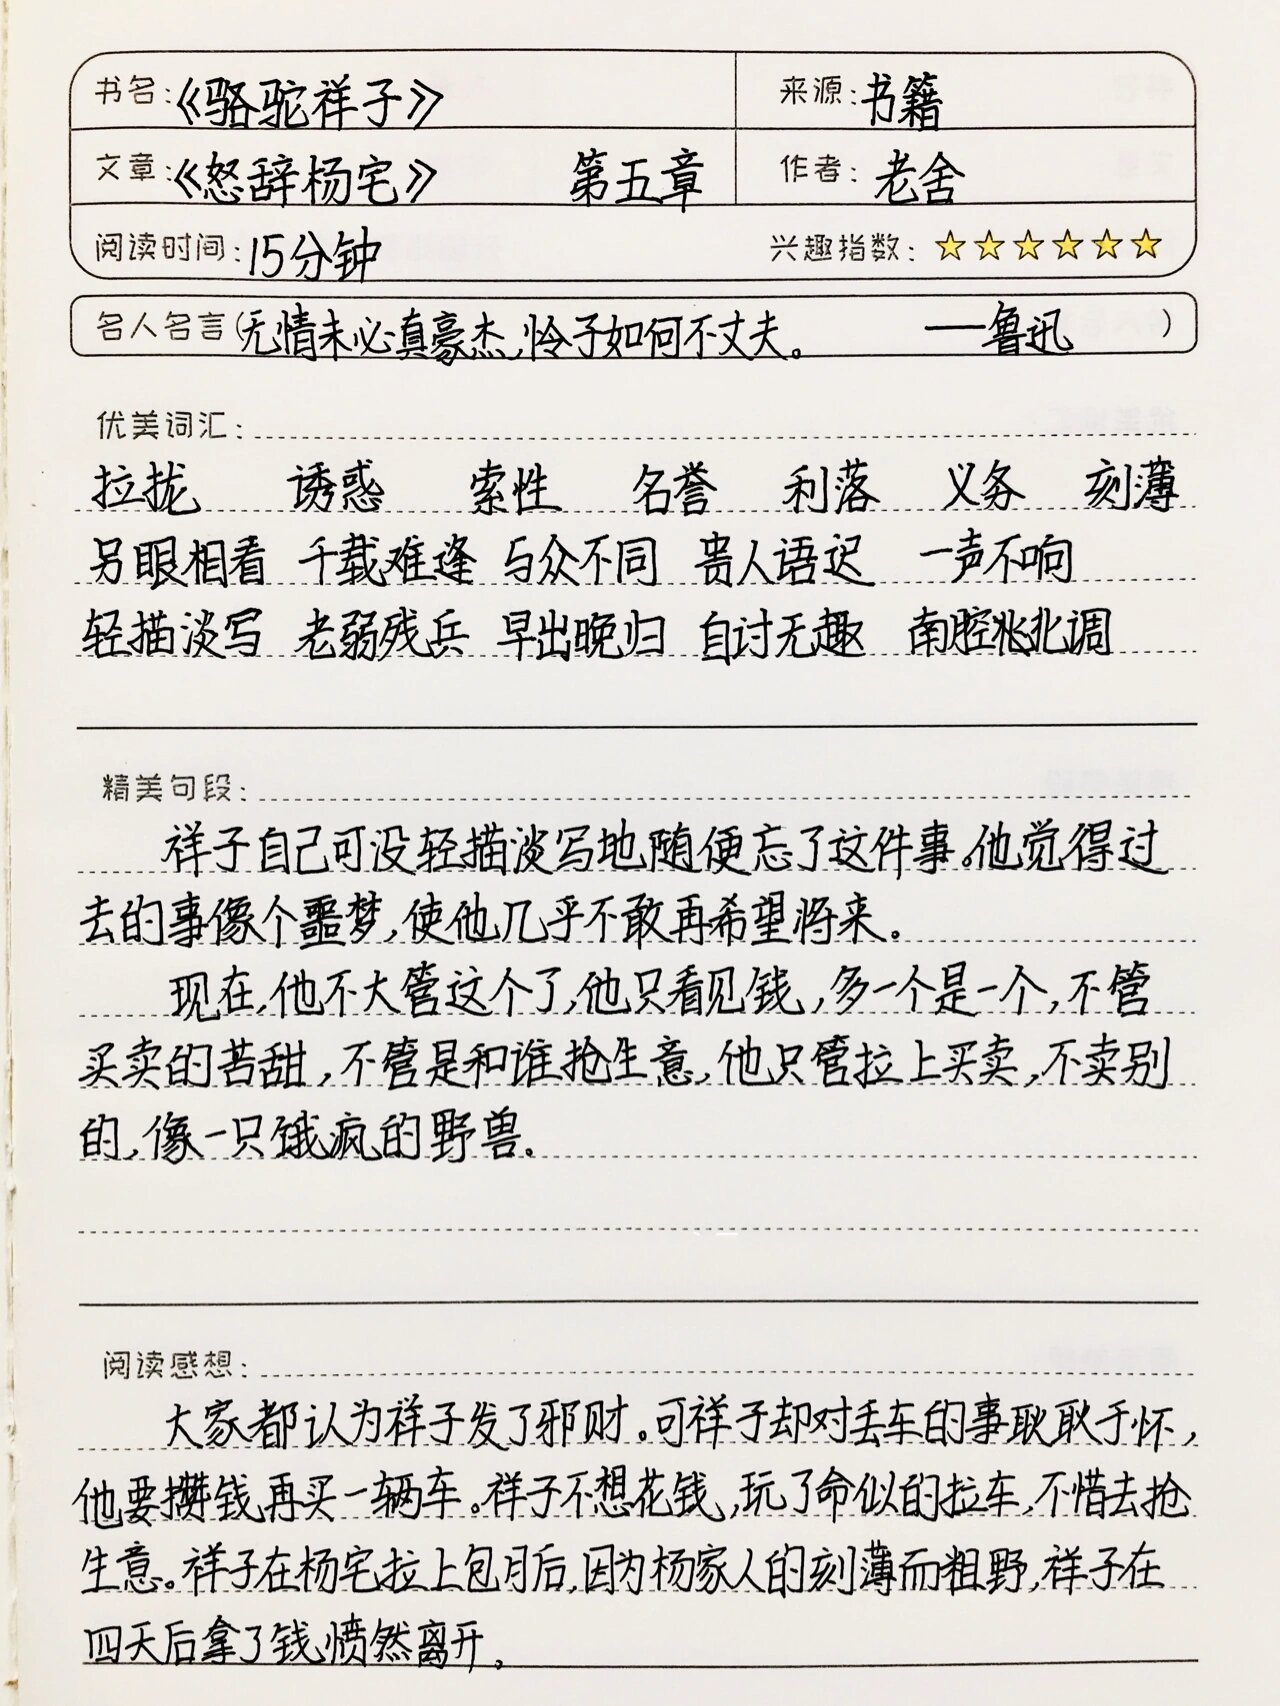 书名:《骆驼祥子》 来源:书籍
文章:《怒辞杨宅》 第五章 作者:老舍
阅读时间:15分钟 兴趣指数:
名人名言(无情未必真豪杰,怜子如何不丈夫。 ——鲁迅 )
优美词汇:
拉拢 诱惑 索性 名誉 利落 义务 刻薄
另眼相看 千载难逢 与众不同 贵人语迟 一声不响
轻描淡写 老弱残兵 早出晚归 自讨无趣 南腔北调
精美句段:
祥子自己可没轻描淡写地随便忘了这件事。他觉得过
去的事像个噩梦,使他几乎不敢再希望将来。
现在,他不大管这个了,他只看见钱,多一个是一个,不管
买卖的苦甜,不管是和谁抢生意,他只管拉上买卖,不卖别
的,像一只饿疯的野兽。
阅读感想:
大家都认为祥子发了邪财。可祥子却对丢车的事耿耿于怀,
他要攒钱再买一辆车。祥子不想花钱,玩了命似的拉车,不惜去抢
生意。祥子在杨宅拉上包月后,因为杨家人的刻薄而粗野,祥子在
四天后拿了钱愤然离开。